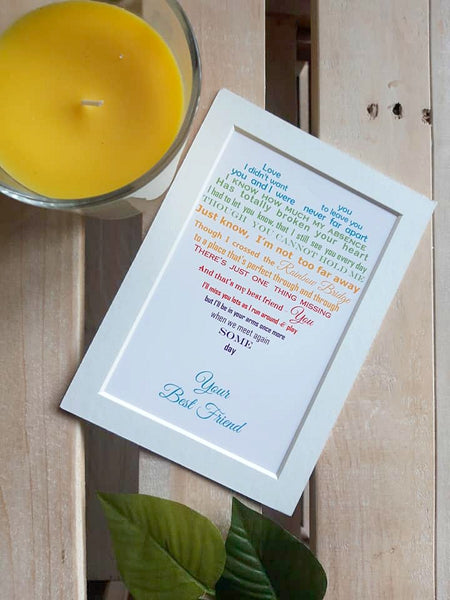 Love you
I didn't want to leave you
you and I were never far apart
I KNOW HOW MUCH MY ABSENCE
Has totally broken your heart
I had to let you know, that I still see you every day
THOUGH YOU CANNOT HOLD ME
Just know, I'm not too far away
Though I crossed the Rainbow Bridge
to a place that's perfect through and through
THERE'S JUST ONE THING MISSING
And that's my best friend - You
I'll miss you lots as I run around & play
but I'll be in your arms once more
when we meet again
SOME
day
Your
Best Friend